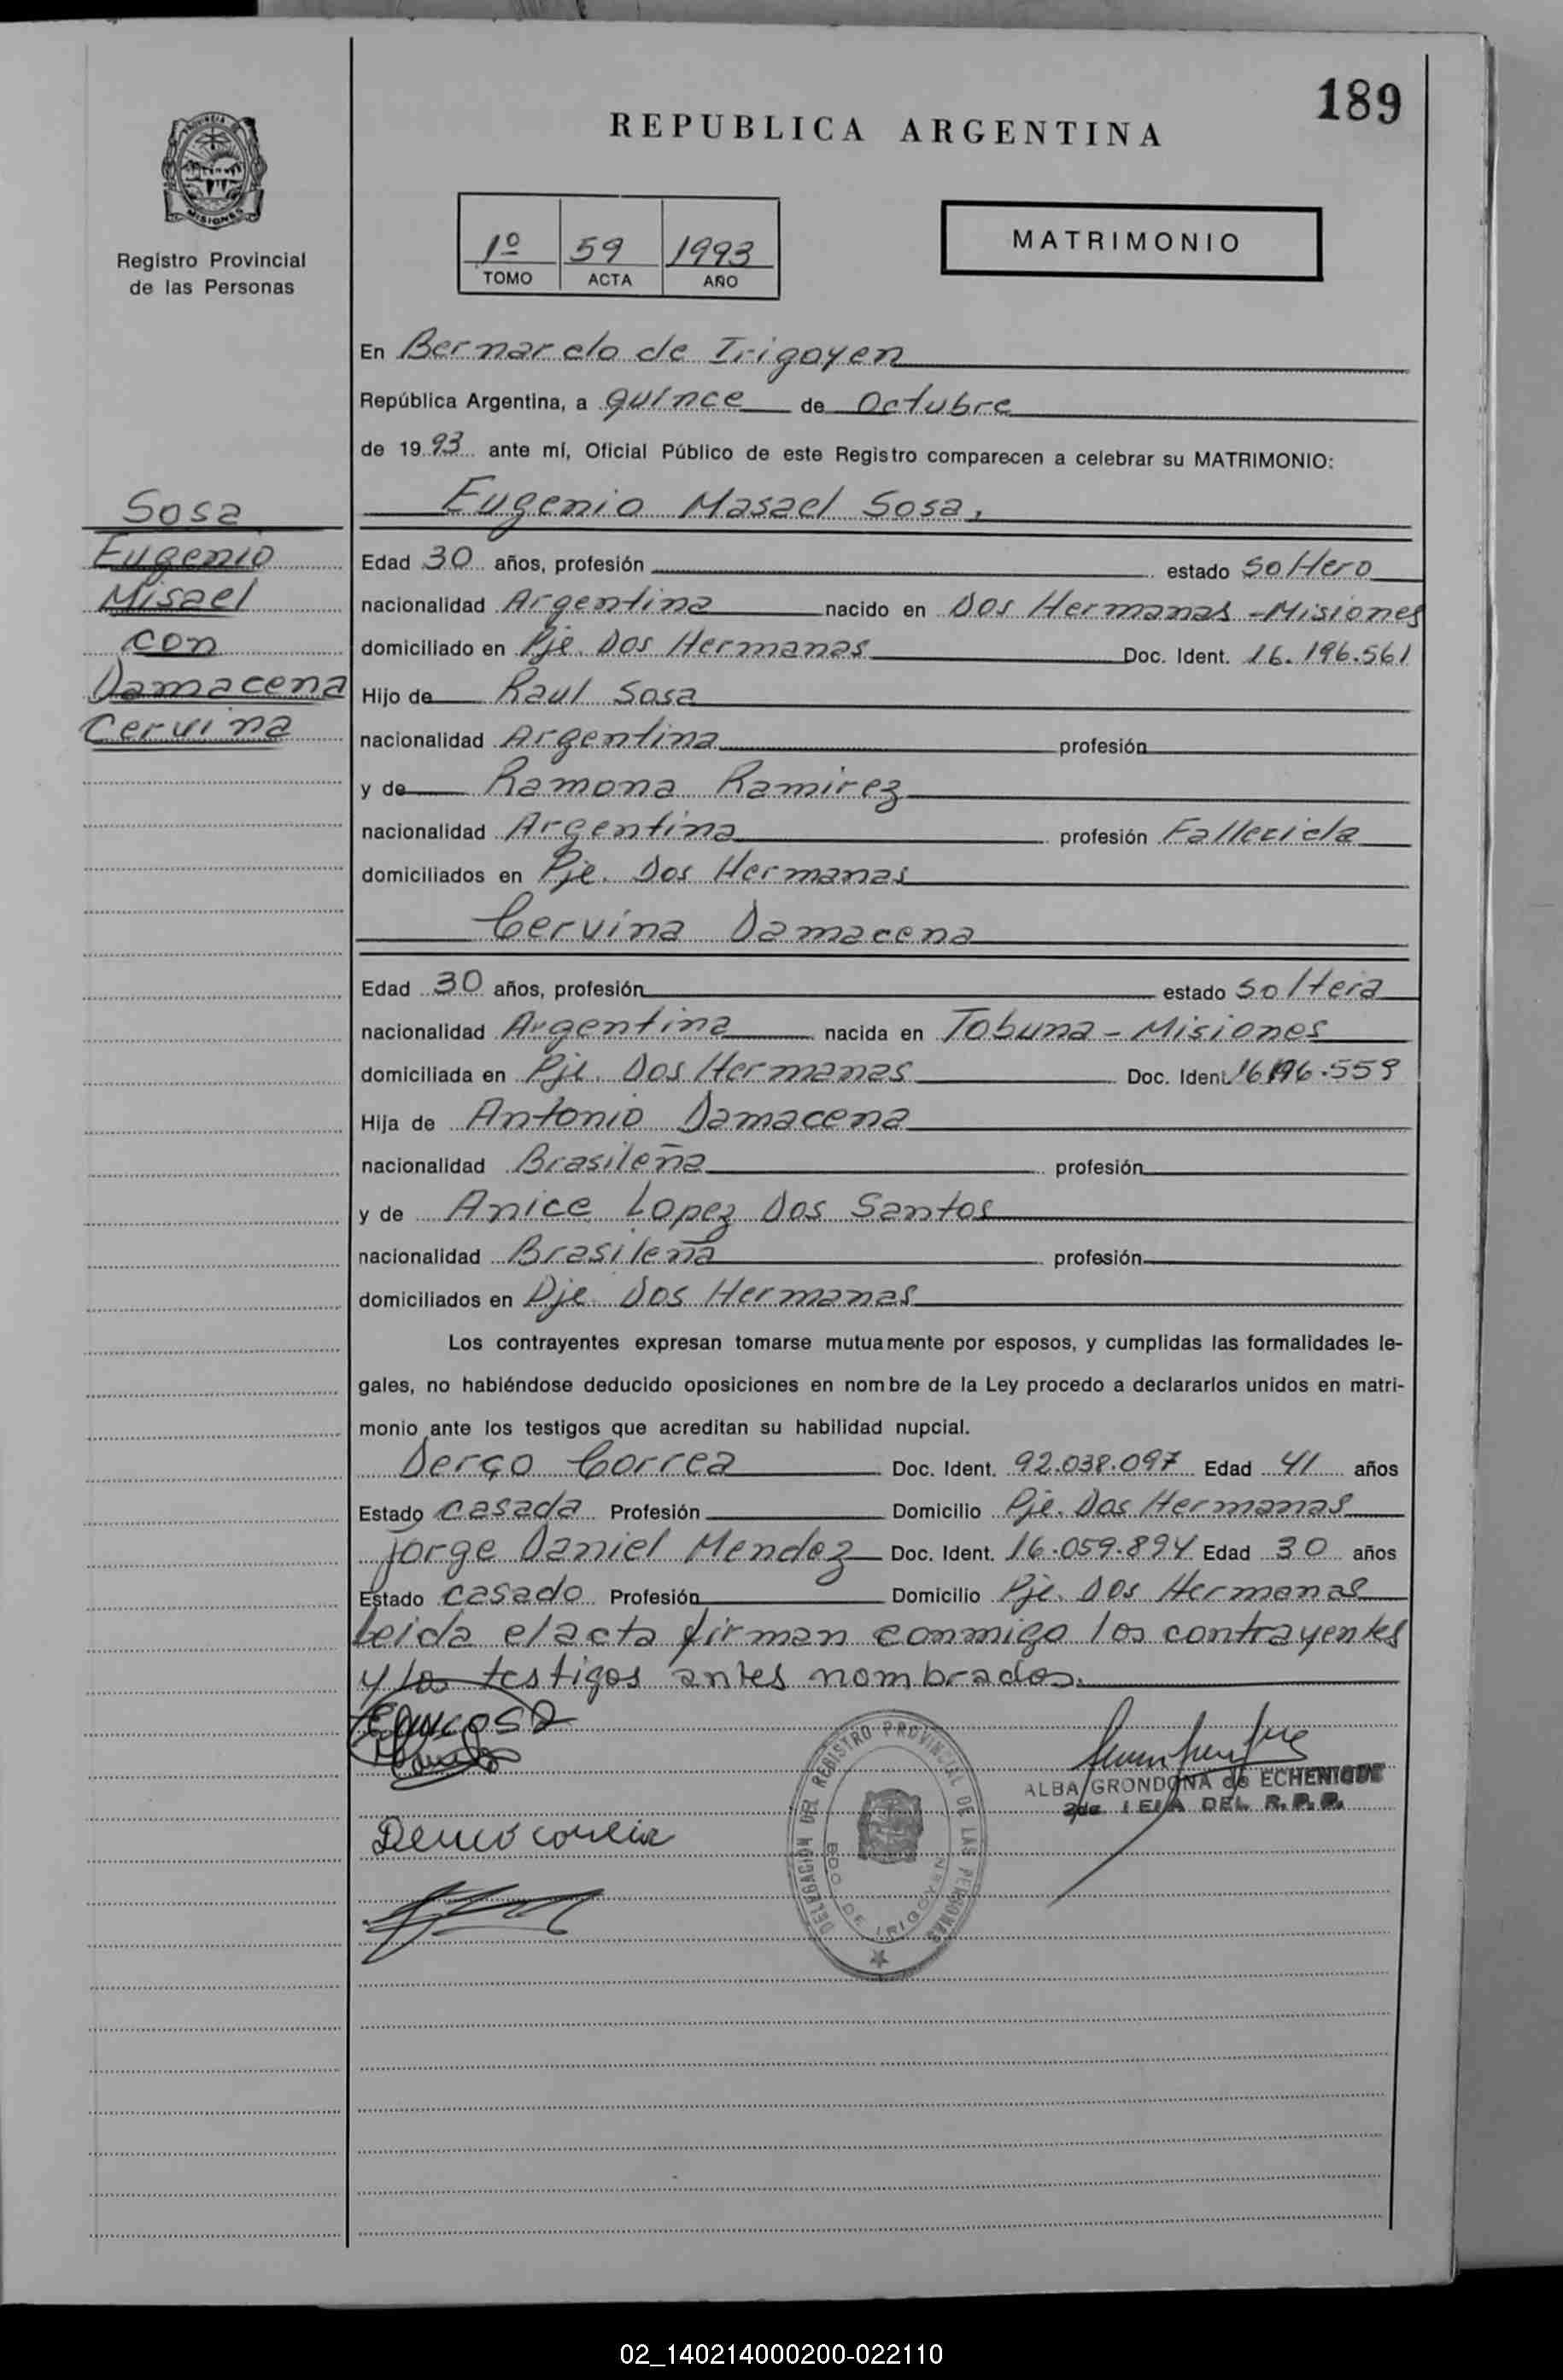 189
REPUBLICA ARGENTINA
PROVINCIA DE
MISIONES
Registro Provincial
de las Personas
1º 59 1993
TOMO ACTA AÑO
MATRIMONIO
En Bernardo de Irigoyen
República Argentina, a quince de Octubre
de 1993 ante mí, Oficial Público de este Registro comparecen a celebrar su MATRIMONIO:
Sosa
Eugenio
Misael
con
Damacena
Cervina
Eugenio Masael Sosa,
Edad 30 años, profesión estado soltero
nacionalidad Argentina nacido en Dos Hermanas - Misiones
domiciliado en Pje. Dos Hermanas Doc. Ident. 16.196.561
Hijo de Raul Sosa
nacionalidad Argentina profesión
y de Ramona Ramirez
nacionalidad Argentina profesión Fallecida
domiciliados en Pje. Dos Hermanas
Cervina Damacena
Edad 30 años, profesión estado soltera
nacionalidad Argentina nacida en Tobuna - Misiones
domiciliada en Pje. Dos Hermanas Doc. Ident. 16.196.559
Hija de Antonio Damacena
nacionalidad Brasileña profesión
y de Anice Lopez Dos Santos
nacionalidad Brasileña profesión
domiciliados en Pje. Dos Hermanas
Los contrayentes expresan tomarse mutuamente por esposos, y cumplidas las formalidades le-
gales, no habiéndose deducido oposiciones en nombre de la Ley procedo a declararlos unidos en matri-
monio ante los testigos que acreditan su habilidad nupcial.
Derço Correa Doc. Ident. 92.038.097 Edad 41 años
Estado casada Profesión Domicilio Pje. Dos Hermanas
Jorge Daniel Mendez Doc. Ident. 16.059.894 Edad 30 años
Estado casado Profesión Domicilio Pje. Dos Hermanas
Leida el acta firman conmigo los contrayentes
y los testigos antes nombrados.
DELEGACIÓN DEL REGISTRO PROVINCIAL DE LAS PERSONAS
BDO DE IRIGOYEN
ALBA GRONDONA de ECHENIQUE
2da JEFA DEL R.P.P.
02_140214000200-022110